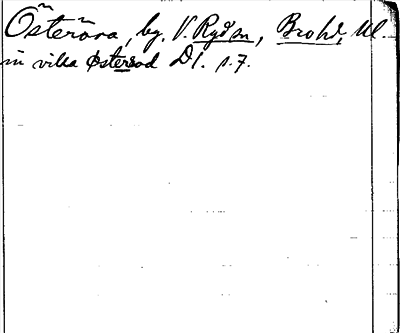 Österöra, by, V. Ryd sn, Brohd, Ul.
in villa Østerød D1. s. 7.